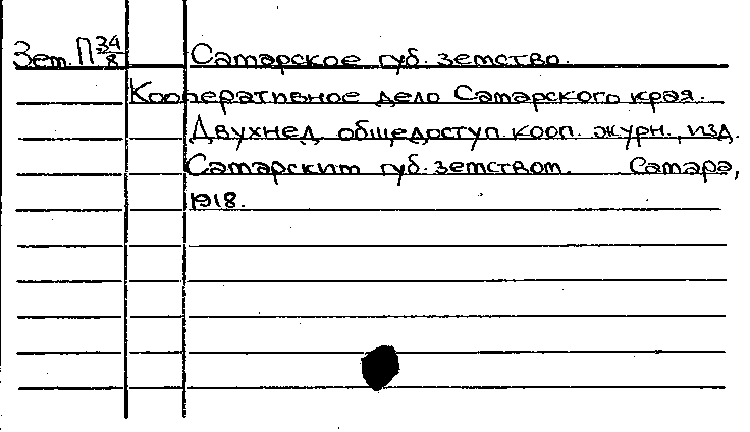 Зем. П 34/8 Самарское губ. земство.
Кооперативное дело Самарского края.
Двухнед. общедоступ. кооп. журн., изд.
Самарским губ. земством. Самара,
1918.